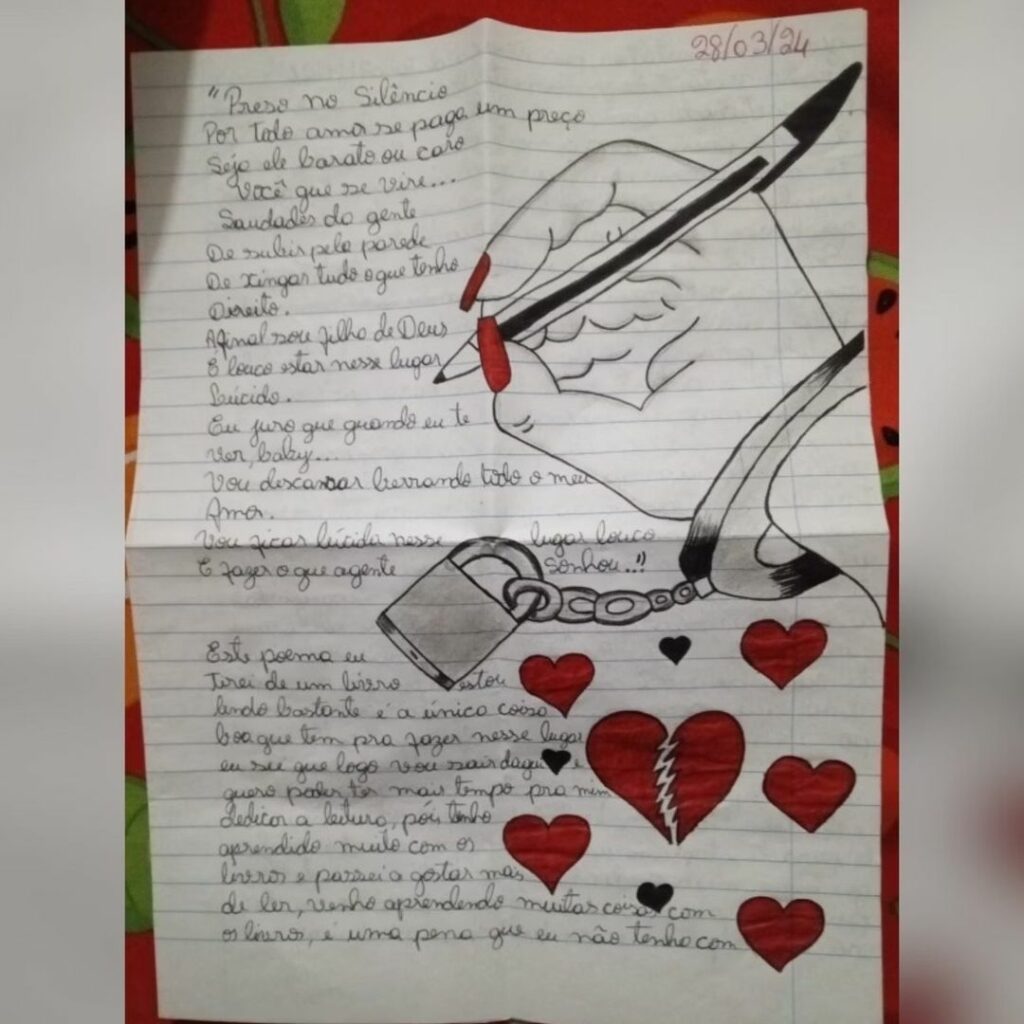 28/03/24
"Preso no Silêncio
Por todo amor se paga um preço
Seja ele barato ou caro
Você que se vire...
Saudades da gente
De subir pela parede
De xingar tudo o que tenho
Direito.
Afinal sou filho de Deus
E louco estar nesse lugar
Lúcido.
Eu juro que quando eu te
ver, baby...
Vou descansar berrando todo o meu
Amor.
Vou ficar lúcida nesse lugar louco
E fazer o que agente sonhou..."
Este poema eu
Tirei de um livro estou
lendo bastante é a única coisa
boa que tem pra fazer nesse lugar
eu sei que logo vou sair daqui e
quero poder ter mais tempo pra mim
dedicar a leitura, pois tenho
aprendido muito com os
livros e passei a gostar mas
de ler, venho aprendendo muitas coisas com
os livros, é uma pena que eu não tenho com